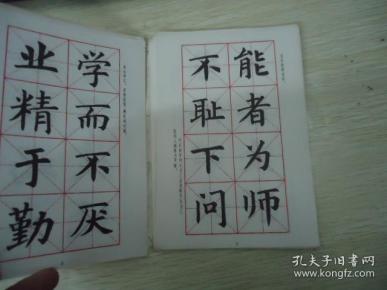 能者为师
不耻下问
学而不厌
业精于勤
孔夫子旧书网
www.kongfz.com